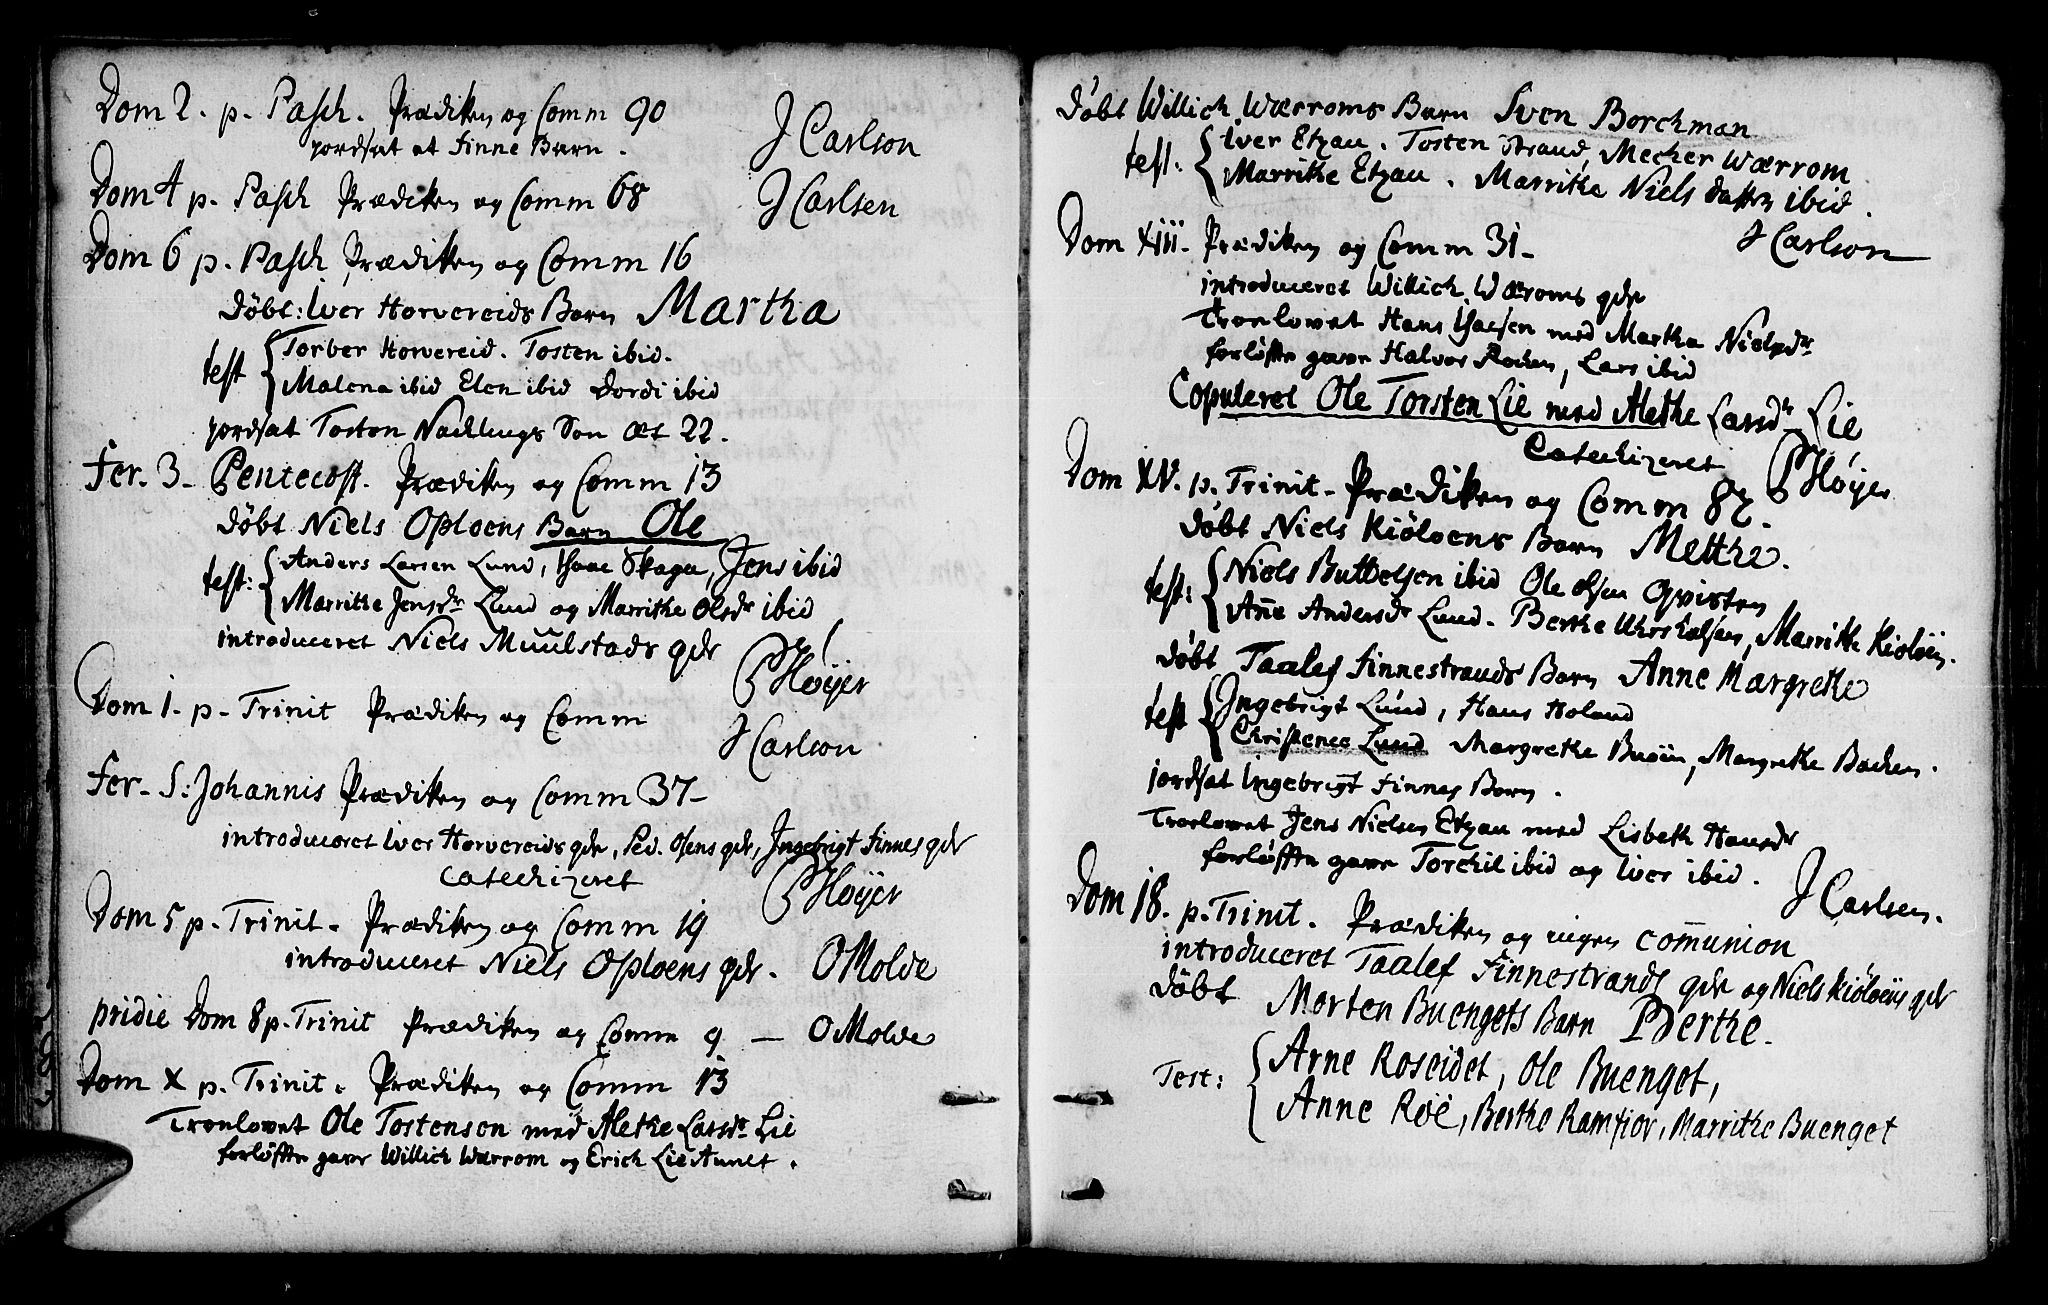 Dom 2. p. Pasch. Prædiken og Comm 90
jordsat et Finne Barn. J Carlson
Dom 4 p. Pasch Prædiken og Comm 68 J Carlsen
Dom 6 p. Pasch Prædiken og Comm 16
Døbt: Iver Horvereids Barn Martha
test { Torber Horvereid. Tosten ibid.
Malena ibid Elen ibid Dordi ibid
jordsat Tosten Nachlings Søn æt 22.
Fer. 3 Pentecost. Prædiken og Comm 13
Døbt Niels Oploens Barn Ole
test: { Anders Larsen Lund, Isaac Skage, Jens ibid
Marrithe Jensdr Lund og Marrithe Olsdr ibid
introduceret Niels Muulstads qdr
P Høyer
Dom 1. p. Trinit Prædiken og Comm
J Carlson
Fer. S: Johannis Prædiken og Comm 37
introduceret Iver Horvereids qdr, Ped. Olsens qdr, Ingebrigt Finnes qdr
Catechizeret P Høyer
Dom 5 p. Trinit. Prædiken og Comm 19
introduceret Niels Oploens qdr. O Molde
pridie Dom 8 p. Trinit Prædiken og Comm 9 — O Molde
Dom X p. Trinit. Prædiken og Comm 13
Troelovet Ole Tostensen med Alethe Larsdr Lie
forløfte gavr Willich Wærrom og Erich Lie Aunet.
Døbt Willich Wærroms Barn Sven Borchman
test: { Iver Etzau. Tosten Strand, Mecher Wærrom
Marrithe Etzau. Marrithe Niels Datter ibid.
J Carlson
Dom Xiii. Prædiken og Comm 31
introduceret Willich Wæroms qdr
Troelovet Hans Isacsen med Martha Nielsdr
forløfte gavr Halvor Lars ibid
Copuleret Ole Torsten Lie med Alethe Larsdr Lie
Catechizeret P Høyer
Dom XV. p. Trinit. Prædiken og Comm 82.
Døbt Niels Kiøloens Barn Methe.
test: { Niels Buttelsen ibid Ole Olsen Qvisten
Anne Andersdr Lund. Berthe Marrithe Kioløen.
Døbt Taalef Finnestrands Barn Anne Margrethe
test { Ingebrigt Lund, Hans Holand
Christence Lund Margrethe Buøin, Margrethe Bachen.
jordsat Ingebrigt Finnes Barn.
Troelovet Jens Nielsen Etzau med Lisbeth Hansdr
forløfte gavr Torchil ibid og Iver ibid.
J Carlsen.
Dom 18. p. Trinit. Prædiken og ingen communion
introduceret Taalef Finnestrands qdr og Niels Kiøloens qdr
Døbt Morten Buengets Barn Berthe.
Test: { Arne Roseidet, Ole Buenget,
Anne Roë, Berthe Ramfior, Marrithe Buenget